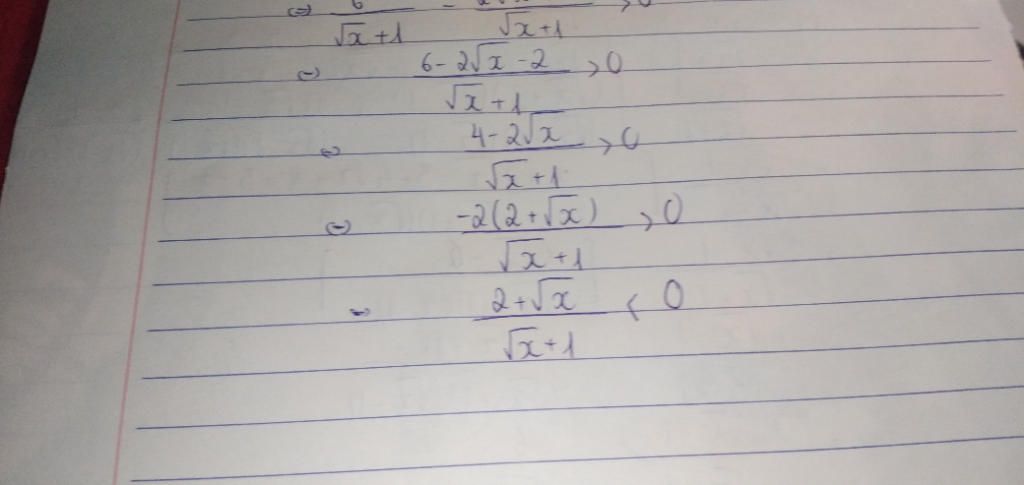 ⇔ 6/(√x+1) - /(√x+1) > 0
⇔ (6-2√x-2)/(√x+1) > 0
⇔ (4-2√x)/(√x+1) > 0
⇔ (-2(2+√x))/(√x+1) > 0
⇔ (2+√x)/(√x+1) < 0